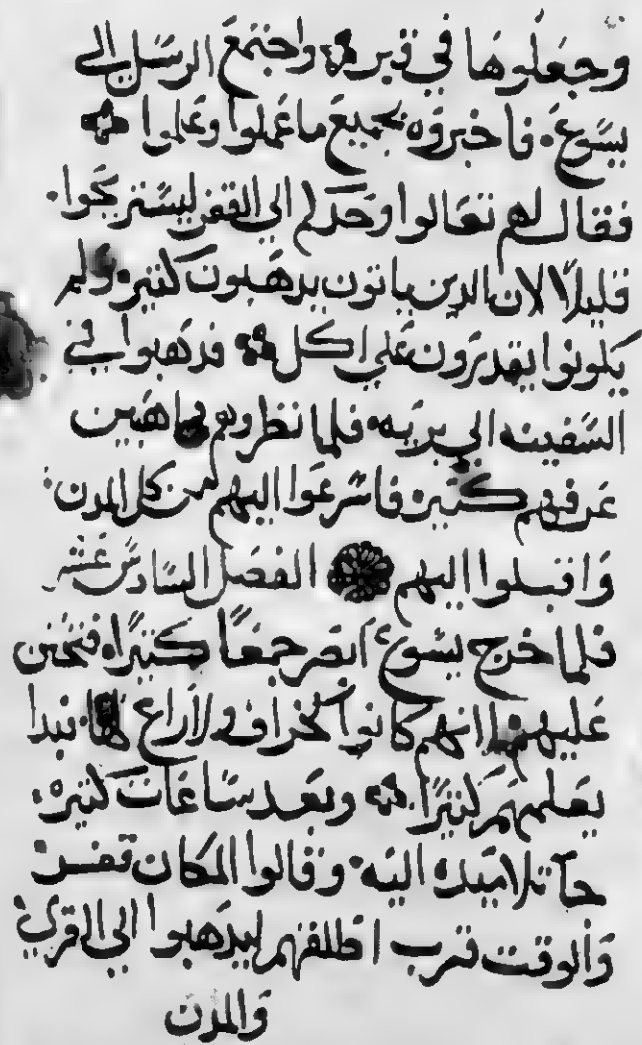 وجعلوها في قبره واجتمع الرسل الي
يسوع فاخبروه بجميع ما عملوا وعلموا
فقال لهم تعالوا وحدكم الي القفر لتستريحوا
قليلا لان الدين ياتون يدهبون كثيره ولم
يكونوا يقدرون علي اكل فدهبوا في
السفينه الي بريه فلما نظروهم داهبين
عرفهم كثيره فاسرعوا اليهم من كل المدن
واقبلوا اليهم الفصل السادس عشر
فلما خرج يسوع ابصر جمعا كثيرا فتحنن
عليهم لانهم كانوا كخراف لا راع لها فبدا
يعلمهم كثيرا وبعد ساعات كثيره
جا تلاميده اليه وقالوا المكان قفر
والوقت قرب اطلقهم ليدهبوا الي القري
والمدن